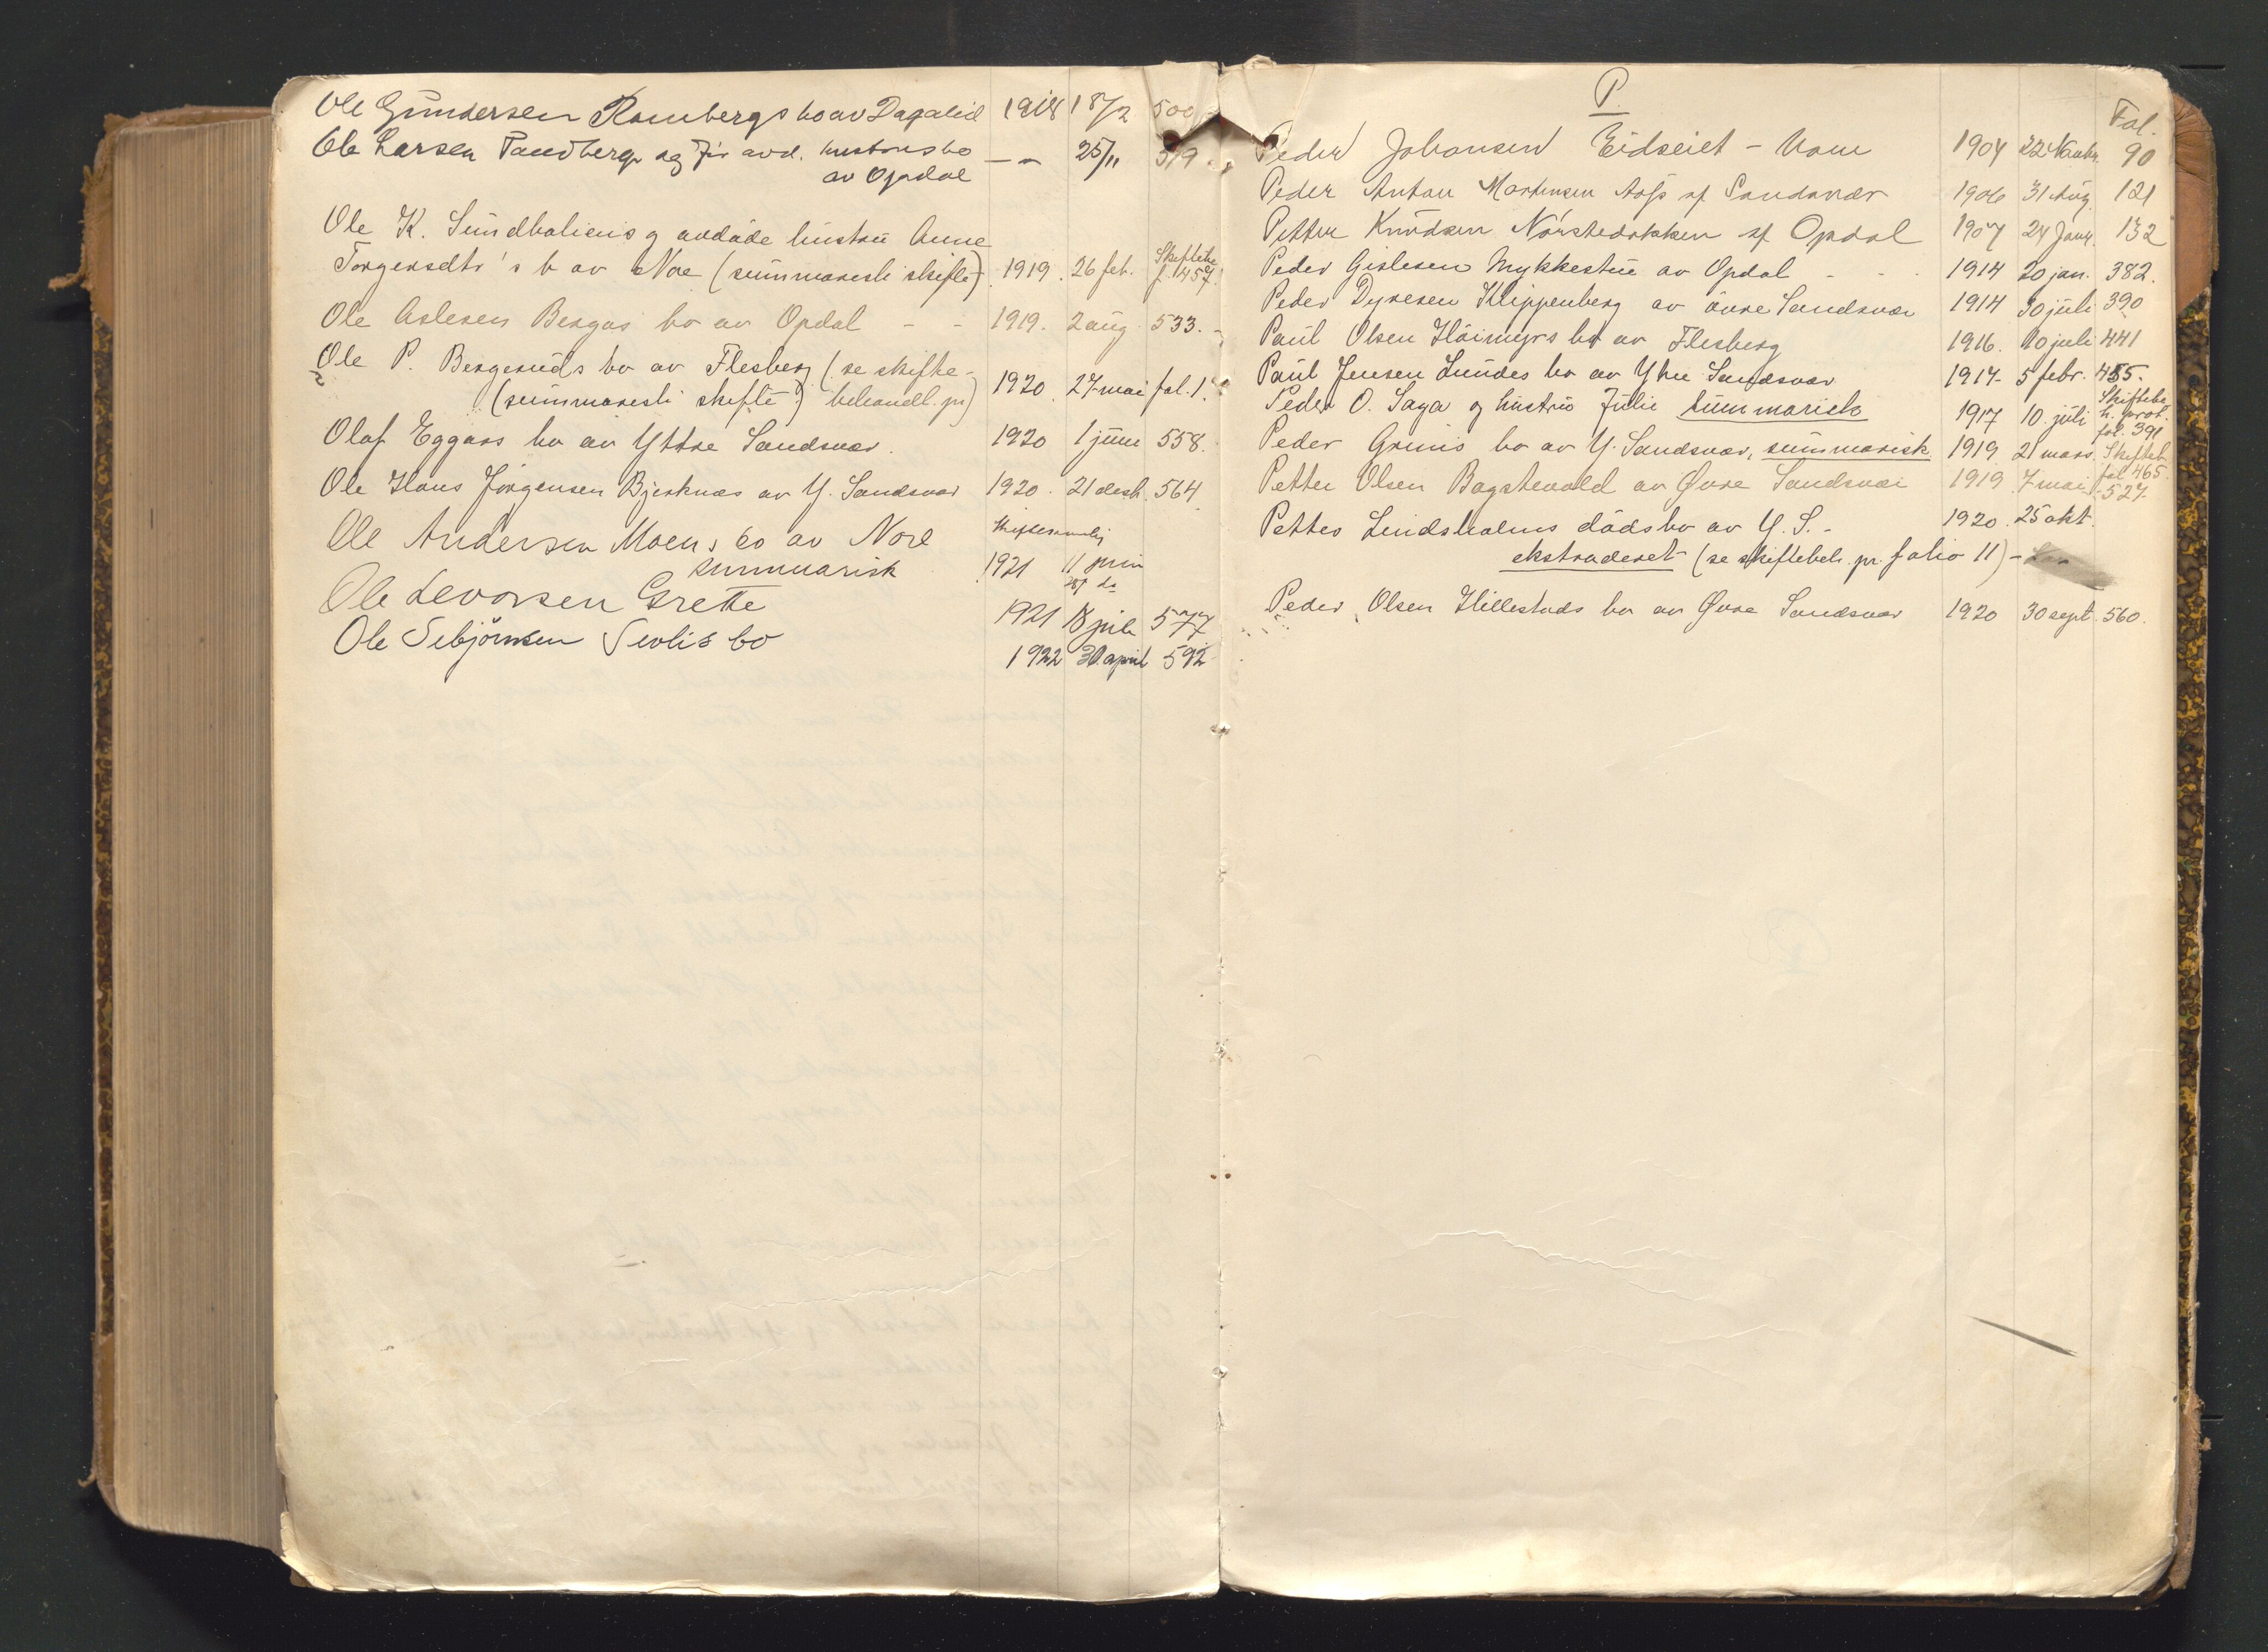 Ole Gundersen Rambergs bo av Dagalid 1918 18/2 500
Ole Larsen Tandberg og før avd. hustrus bo — — 25/11 519
av Opdal
Ole K. Sundhaliens og avdøde hustru Anne
Torgersdtr's b av Nore (summarisk skifte) 1919. 26 feb. Skiftebe. f. 457.
Ole Aslesen Bergas bo av Opdal - - 1919. 2 aug. 533.
Ole P. Bergeruds bo av Flesberg (se skifte-
(summarisk skifte) behandl. pr) 1920. 27 mai fol. 1.
Olaf Eggars bo av Yttre Sandsvær. 1920 1 juni 558.
Ole Hans Jørgensen Bjerknæs av Y. Sandsvær 1920. 21 desb. 564.
Ole Andersen Moens bo av Nore
summarisk 1921 11 juni
Ole Levorsen Grette 1921 18 juli 577
Ole Sebjørnsen Sevlis bo 1922 30 april 592
P.
Fol.
Peder Johansen Eidseiet - 1904 22 Novbr. 90
Peder Anton Martinsen Aass af Sandsvær 1906 31 Aug. 121
Petter Knudsen Nørstedokken af Opdal 1907 24 Janr. 132
Peder Gislesen Mykkestue av Opdal - - 1914 20 jan. 382.
Peder Dyresen Klippenberg av øvre Sandsvær 1914 30 juli 390
Paul Olsen Høimyrs bo av Flesberg 1916. 10 juli 441
Paul Jensen Lundes bo av Ytre Sandsvær 1917- 5 febr. 455.
Peder O. Saga og hustru Julie summarisk 1917 10. juli Skiftebe. h. prot. fol. 391
Peder Grunis bo av Y. Sandsvær, summarisk 1919 21 mars. Skifteb. fol 465
Petter Olsen Bagstevold av Øvre Sandsvær 1919 7 mai - 527.
Petter Lindsholms dødsbo av Y. S. - 1920. 25 okt.
ekstraderet (se skiftebeh. pr. folio 11) -
Peder Olsen Hillestads bo av Øvre Sandsvær 1920 30 sept. 560.